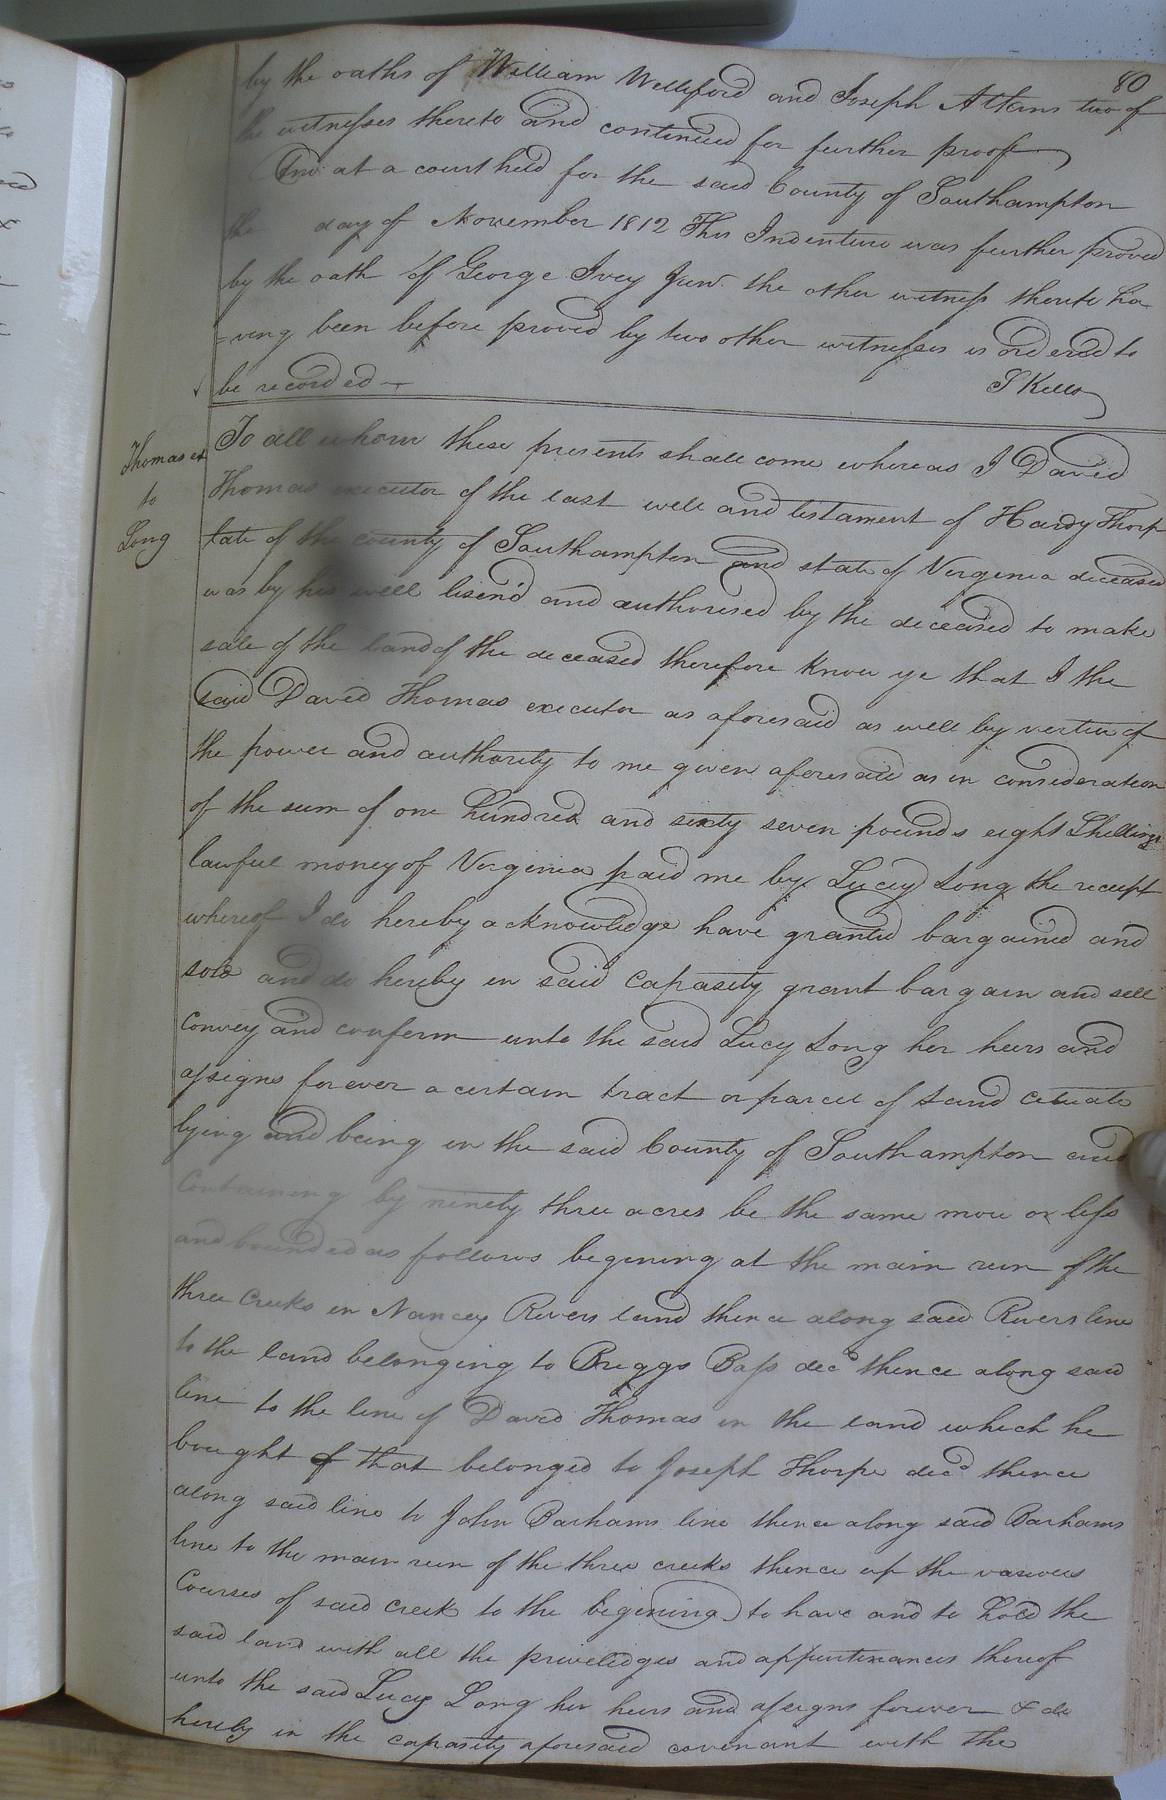 80
by the oaths of William Welliford and Joseph Atkins two of
the witnesses thereto and continued for further proof
And at a court held for the said County of Southampton
the day of November 1812 This Indenture was further proved
by the oath of George Ivey Junr. the other witness thereto ha-
=ving been before proved by two other witnesses is ordered to
be recorded
S Kello
Thomas ex
to
Long
To all whom these presents shall come whereas I David
Thomas executor of the last will and testament of Hardy Thorp
late of the county of Southampton and state of Virginia deceased
was by his will lisend and authorised by the deceased to make
sale of the land of the deceased therefore know ye that I the
said David Thomas executor as aforesaid as well by vertue of
the power and authority to me given aforesaid as in consideration
of the sum of one hundred and sixty seven pounds eight Shillings
lawful money of Virginia paid me by Lucy Long the receipt
whereof I do hereby acknowledge have granted bargained and
sold and do hereby in said capasity grant bargain and sell
convey and confirm unto the said Lucy Long her heirs and
assigns forever a certain tract or parcel of Land cituate
lying and being in the said County of Southampton and
Containing by ninety three acres be the same more or less
and bounded as follows begening at the main run of the
three Creeks in Nancey Rivers land thence along said Rivers line
to the land belonging to Briggs Bass decd thence along said
line to the line of David Thomas in the land which he
bought of that belonged to Joseph Thorpe decd thence
along said line to John Barhams line thence along said Barhams
line to the main run of the three creeks thence up the various
Courses of said creek to the begening to have and to hold the
said land with all the priveledges and appurtenances thereof
unto the said Lucy Long her heirs and assigns forever & do
hereby in the capasity aforesaid covenant with the